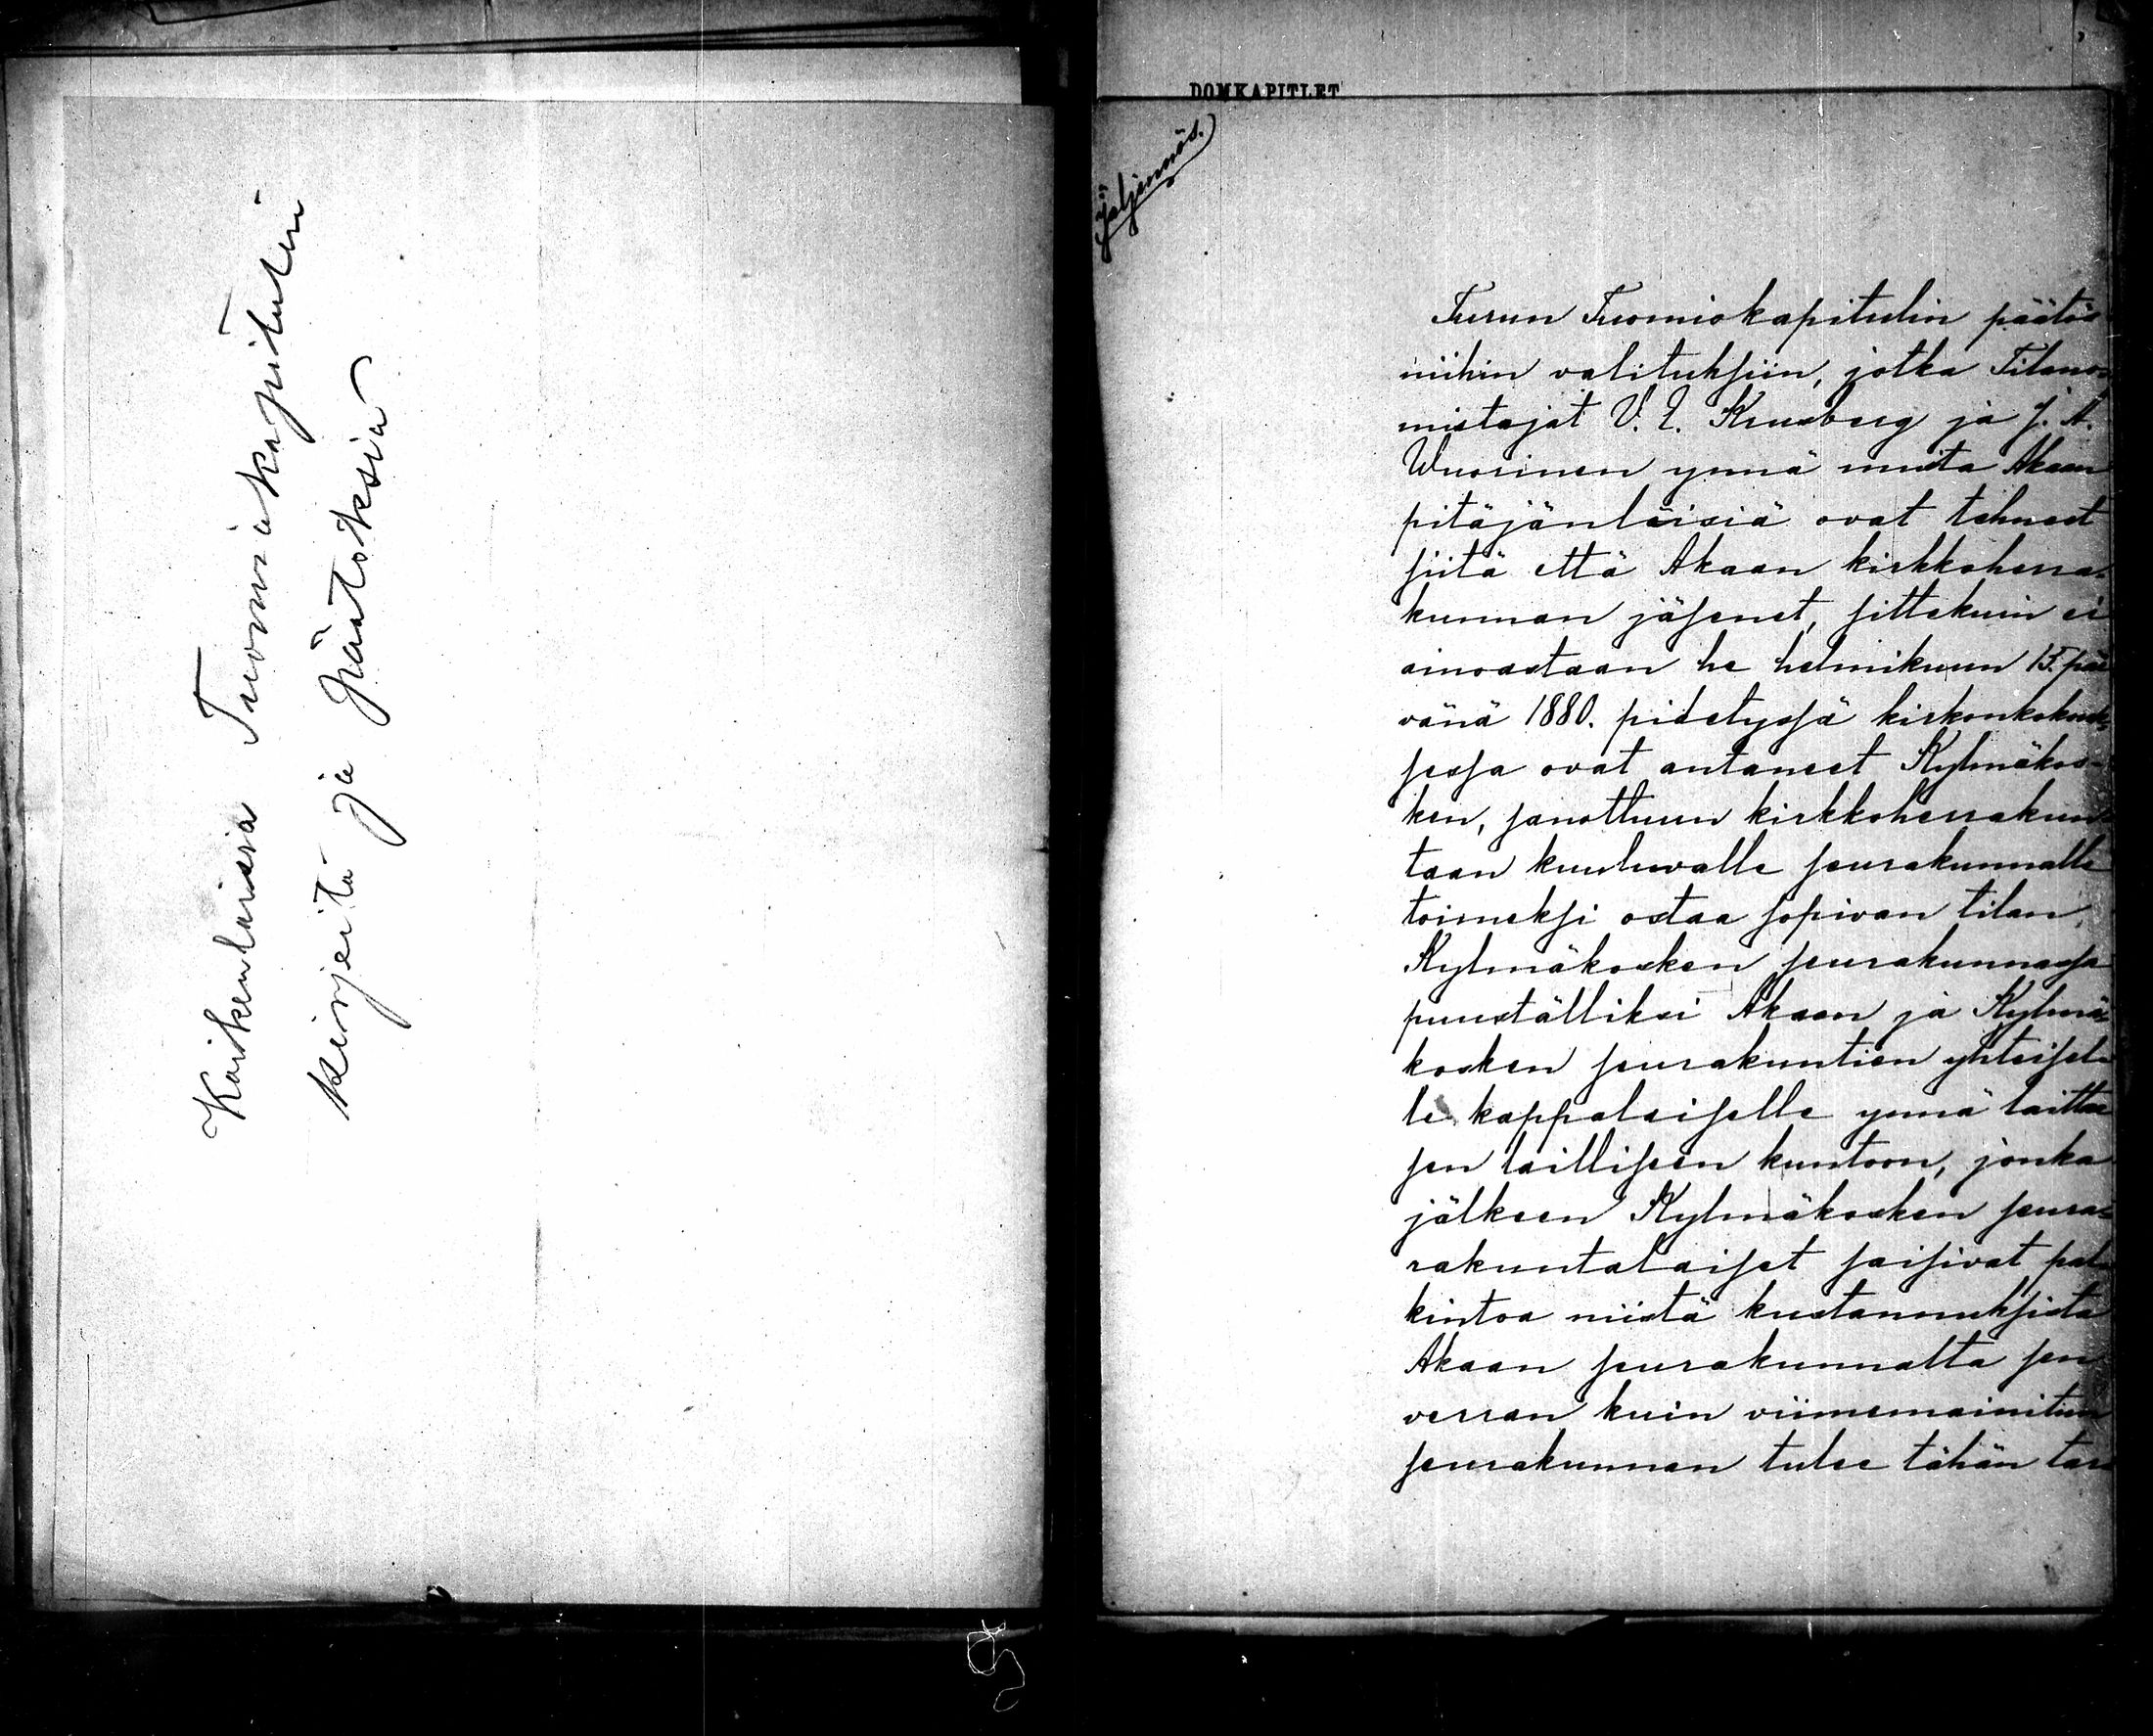 Kaikenlaisia Tuomiokapitulin
kirjeitä ja päätöksiä
DOMKAPITLET
Jäljennös.
Turun Tuomiokapitulin päätös
niihin valituksiin, jotka Tilano-
mistajat V. E. Krusberg ja J. A.
Wuorinen ynnä muita Akaan
pitäjänläisiä ovat tehneet
siitä että Akaan kirkkoherra-
kunnan jäsenet, sittekuin ei
ainoastaan he helmikuun 15. päi
vänä 1880. pidetyssä kirkonkokouk-
sessa ovat antaneet Kylmäkos-
ken, sanottuun kirkkoherrakun
taan kuuluvalle seurakunnalle
toimeksi ostaa sopivan tilan
Kylmäkosken seurakunnassa
puuställiksi Akaan ja Kylmä-
kosken seurakuntien yhteisel-
le kappalaiselle ynnä laittaa
sen lailliseen kuntoon, jonka
jälkeen Kylmäkosken seura-
rakuntalaiset saisivat pal-
kintoa niistä kustannuksista
Akaan seurakunnalta sen
verran kuin viimemainitun
seurakunnan tulee tähän tar